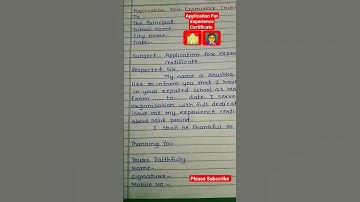 Application For Experience Certi
To
The Principal
School name
City name
Date:-
Application For
Experience
Certificate
Subject:- Application for exper
certificate.
Respected Sir,
My name is Anushka.
like to inform you that I hav
in your reputed school as
from ..... to ..... date. I serve
organisation with full dedicat
issue me my experience certi
above said period.
I shall be thankful to
Thanking You
Yours Faithfully
Name-
Signature-
Mobile No.-
Please Subscribe